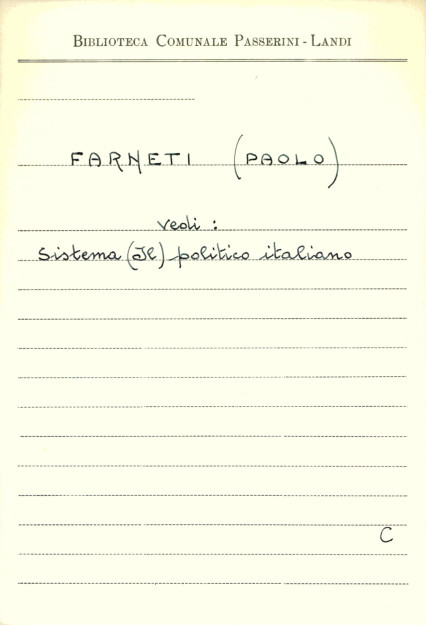 BIBLIOTECA COMUNALE PASSERINI - LANDI
FARNETI (PAOLO)
vedi :
Sistema (Il) politico italiano
C